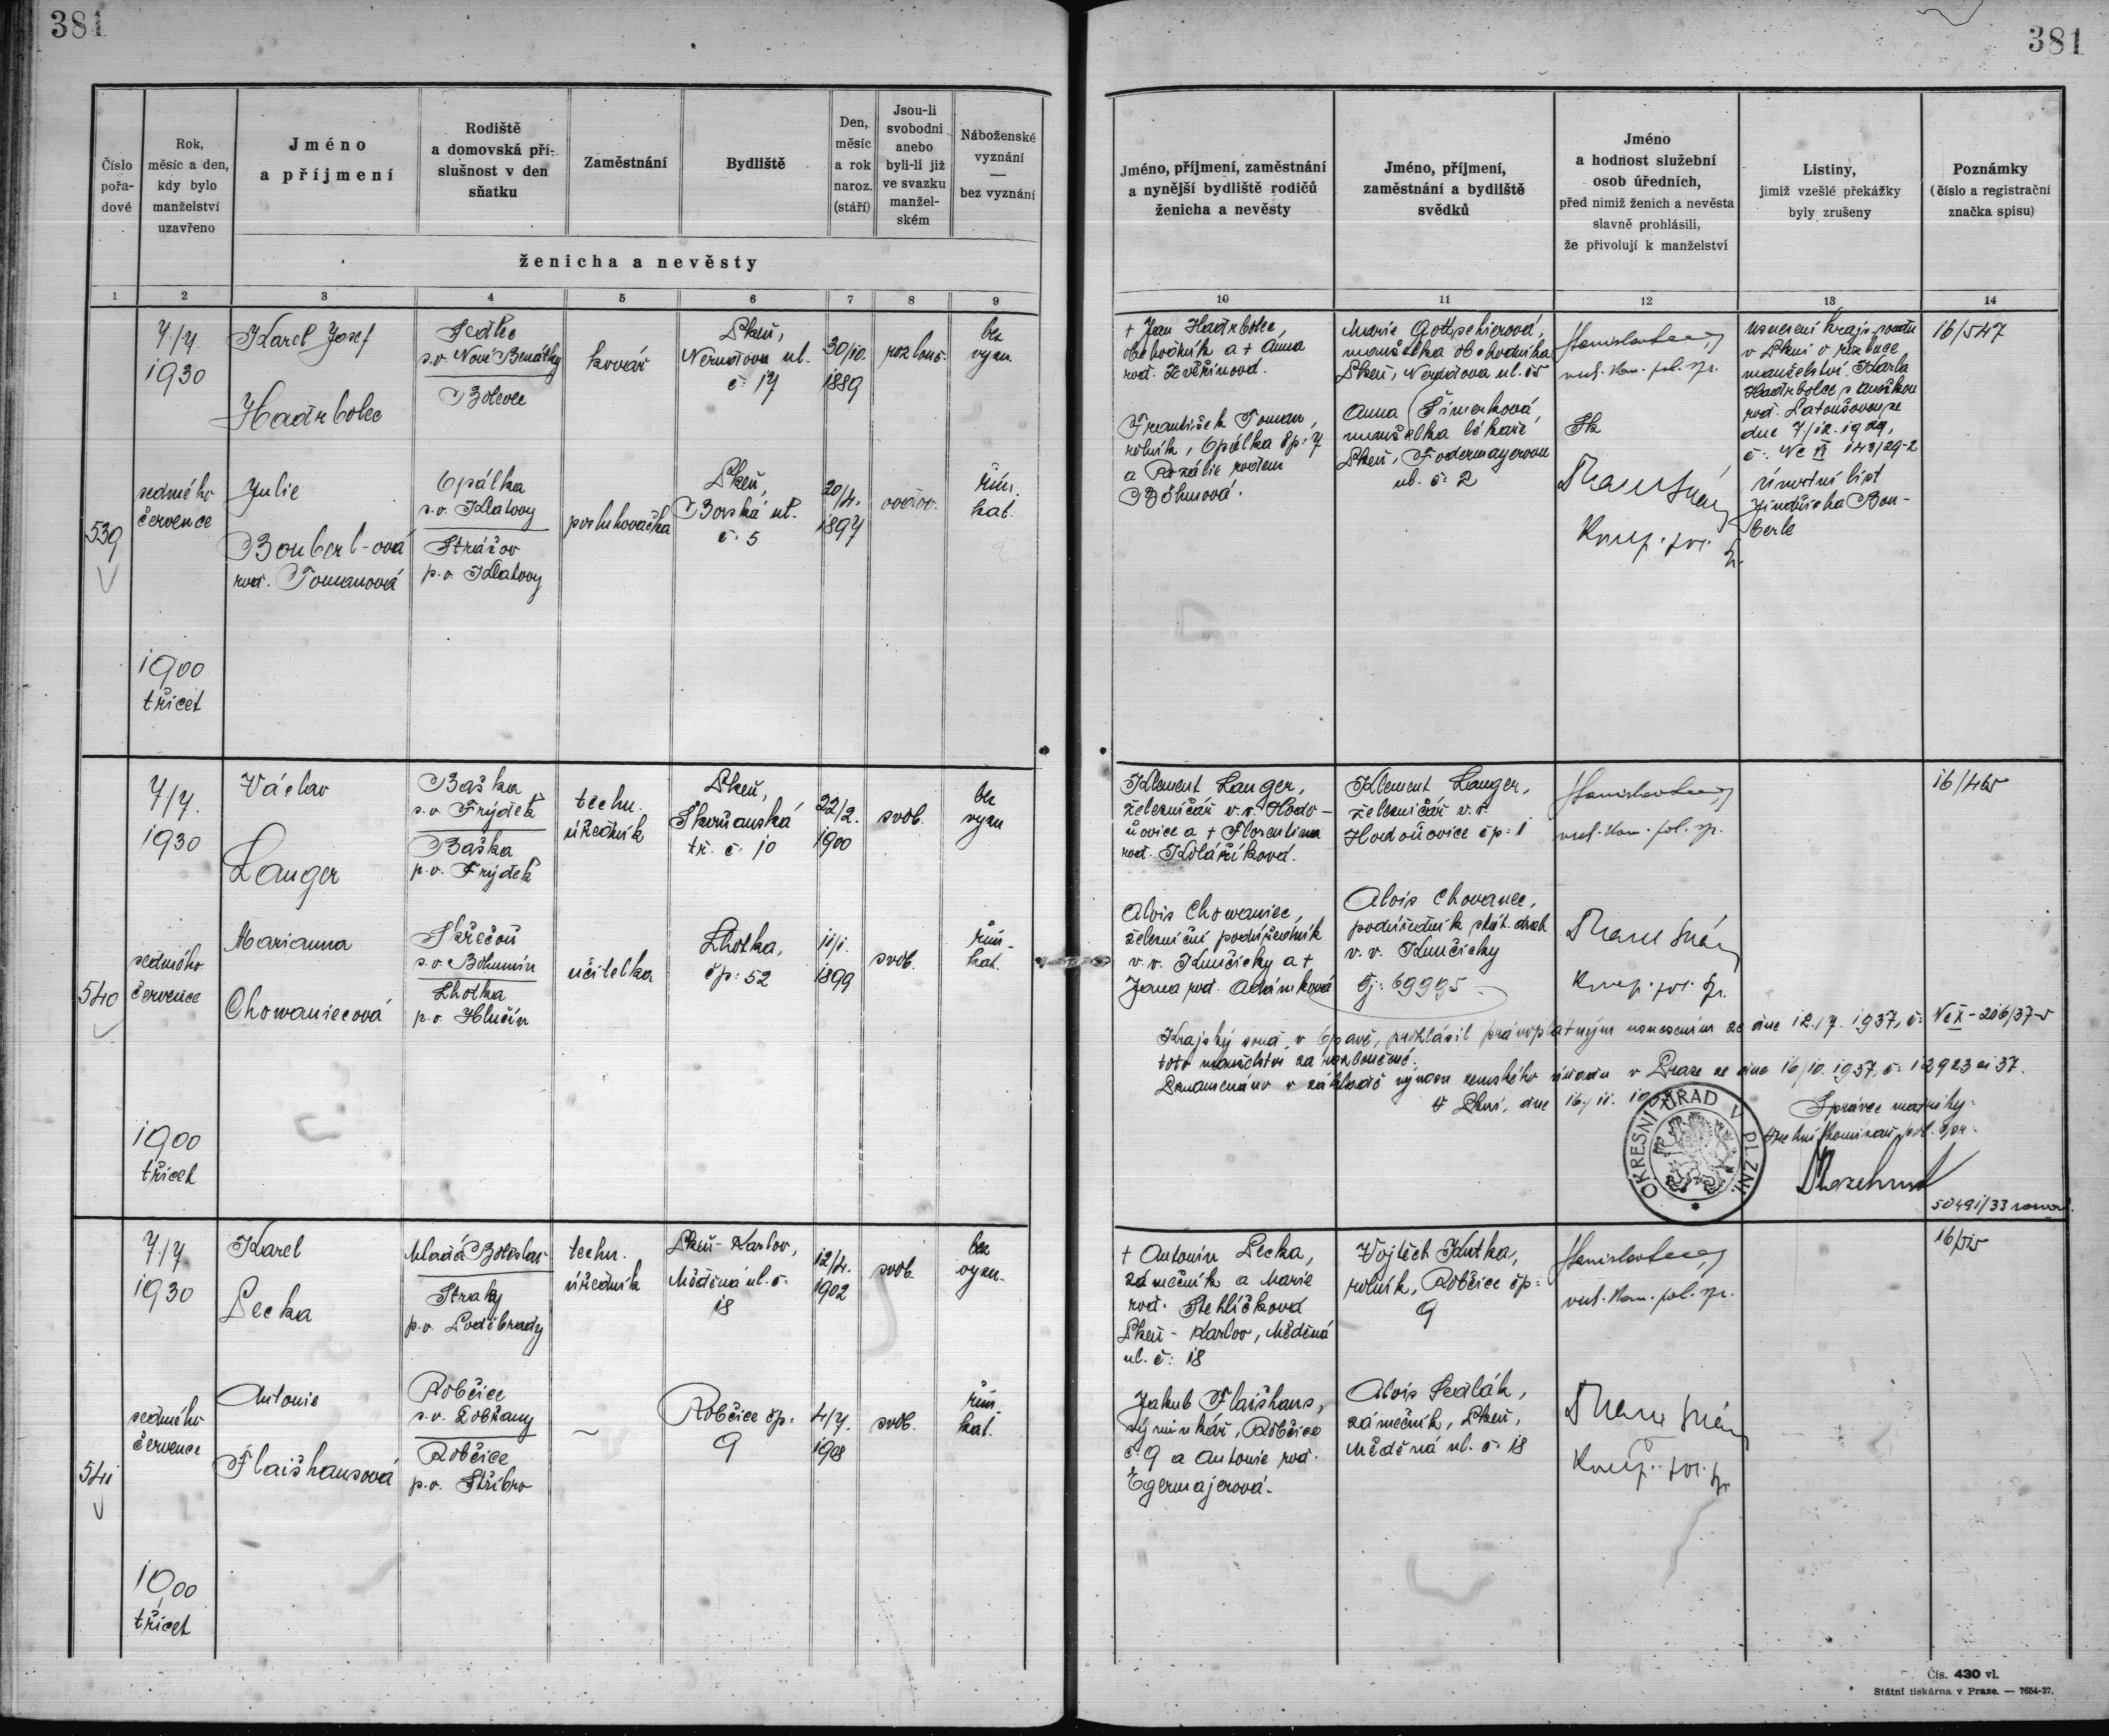 381
381
Číslo pořa-dové
Rok, měsíc a den, kdy bylo manželství uzavřeno
Jméno a příjmení
Rodiště a domovská pří-slušnost v den sňatku
Zaměstnání
Bydliště
Den, měsíc a rok naroz. (stáří)
Jsou-li svobodni anebo byli-li již ve svazku manžel-ském
Náboženské vyznání — bez vyznání
ženicha a nevěsty
Jméno, příjmení, zaměstnání a nynější bydliště rodičů ženicha a nevěsty
Jméno, příjmení, zaměstnání a bydliště svědků
Jméno a hodnost služební osob úředních, před nimiž ženich a nevěsta slavně prohlásili, že přivolují k manželství
Listiny, jimiž vzešlé překážky byly zrušeny
Poznámky (číslo a registrační značka spisu)
1 2 3 4 5 6 7 8 9 10 11 12 13 14
539
7./7.
1930
sedmého
července
1900
třicet
Karel Josef
Hadrbolec
Sedlec
s.o. Nové Benátky
Bolevec
kovář
Plzeň,
Nerudova ul.
č. 17
30/10.
1889
rozlouč.
bez
vyzn.
Julie
Bouberl-ová
roz. Tomanová
Opálka
s.o. Klatovy
Strážov
p.o. Klatovy
posluhovačka
Plzeň,
Borská ul.
č. 5
20/4.
1897
ovdov.
řím.
kat.
† Jan Hadrbolec,
obchodník a † Anna
roz. Zvěřinová.
František Toman,
rolník, Opálka čp: 7
a Rozálie rodem
Böhmová.
manželka obchodníka
Plzeň, Nerudova ul. 15
Anna Šimerková,
manželka lékaře
Plzeň, Fodermayerova
ul. č. 2
vrch. kom. pol. spr.
usnesení kraj. soudu
v Plzni o rozluce
manželství Karla
Hadrbolce s Anežkou
roz. Latoušovou ze
dne 7/12. 1929,
č: Nc VI 143/29-2
úmrtní list
Jindřicha Bou-
berle
16/547
540
7/7.
1930
sedmého
července
1900
třicet
Václav
Langer
Baška
s.o. Frýdek
Baška
p.o. Frýdek
techn.
úředník
Plzeň,
Skvrňanská
tř. č. 10
22/2.
1900
svob.
bez
vyzn
Marianna
Chowaniecová
Skřečoň
s.o. Bohumín
Lhotka
p.o. Hlučín
učitelka
Lhotka,
čp: 52
11/1.
1899
svob.
řím-
kat.
Klement Langer,
železničář v.v. Hodo-
ňovice a † Florentina
roz. Kolaříková.
Alois Chowaniec,
železniční podúředník
v.v. Kunčičky a †
Jana roz. Adámková
Klement Langer,
železničář v.v.
Hodoňovice čp: 1
Alois Chovanec,
podúředník stát. drah
v.v. Kunčičky
čj: 69995
vrch. kom. pol. spr.
16/465
Krajský soud v Opavě, prohlásil právoplatným usnesením ze dne 12./7. 1937, č: Nc X-206/37-5
toto manželství za rozloučené.
Poznamenáno v základě výnosu zemského úřadu v Praze ze dne 16/10. 1937, č: 12923 ai 37.
V Plzni, dne 16/11. 1937
Správce matriky:
vrchní komisař pol. spr.
OKRESNÍ ÚŘAD V PLZNI.
541
7/7
1930
sedmého
července
10,00
třicet
Karel
Pecka
Mladá Boleslav
Straky
p.o. Poděbrady
techn.
úředník
Plzeň-Karlov,
Měděná ul. č.
18
12/4.
1902
svob.
bez
vyzn.
Antonie
Flaišhansová
Robčice
s.o. Dobřany
Robčice
p.o. Stříbro
Robčice čp:
9
4/7.
1908
svob.
řím.
kat.
† Antonín Pecka,
zámečník a Marie
roz. Stehlíčková
Plzeň-Karlov, Měděná
ul. č: 18
Jakub Flaišhans,
Robčice
č 9 a Antonie roz.
Egermajerová.
Vojtěch Kutka,
rolník, Robčice čp:
9
Alois Sedlák,
zámečník, Plzeň,
Měděná ul. č. 18
vrch. kom. pol. spr.
Čís. 430 vl.
Státní tiskárna v Praze. — 7654-27.